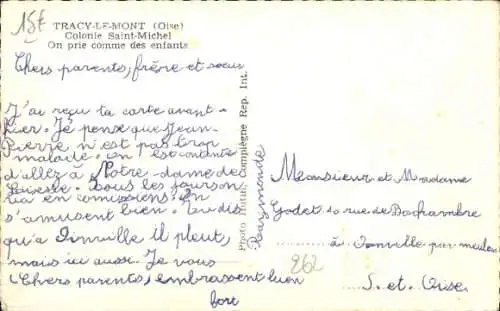 15f
TRACY-LE-MONT (Oise)
Colonie Saint-Michel
On prie comme des enfants
Chers parents, frère et sœur
J'ai reçu ta carte avant-
hier. Je pense que Jean-
Pierre n'est pas trop
malade. On est contente
d'allez à Notre-dame de
Liesse. Tous les jours on
va en comissions. On
s'amusent bien. Tu dis
qu'a Joinville il pleut,
mais ici aussi. Je vous
(Chers parents, embrassent bien
fort
Raymonde
Photo Hutin, Compiègne Rep. Int.
Monsieur et Madame
Godet 10 rue de
à Joinville par meulan
S. et. Oise
262